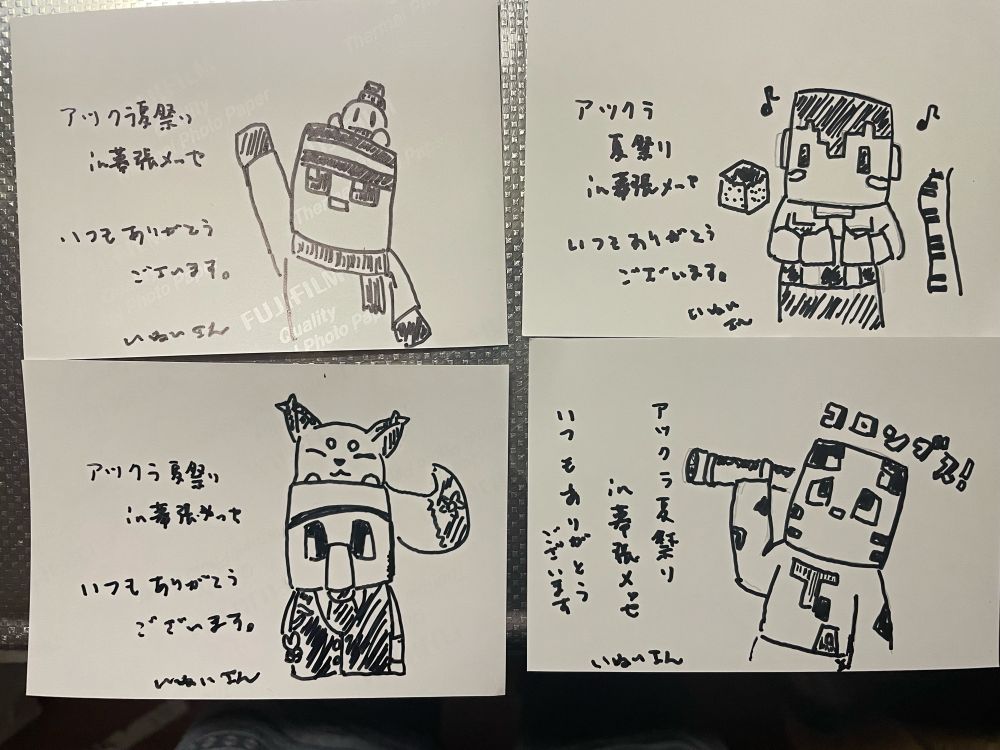 アツクラ夏祭り
in幕張メッセ
いつもありがとう
ございます。
いぬいさん
FUJIFILM
Quality
Photo Paper
Thermal Paper
アツクラ
夏祭り
in幕張メッセ
いつもありがとう
ございます。
いぬい
さん
アツクラ夏祭り
in幕張メッセ
いつもありがとう
ございます。
いぬいさん
コロンブス!
アツクラ夏祭り
in幕張メッセ
いつもありがとう
ございます
いぬいさん